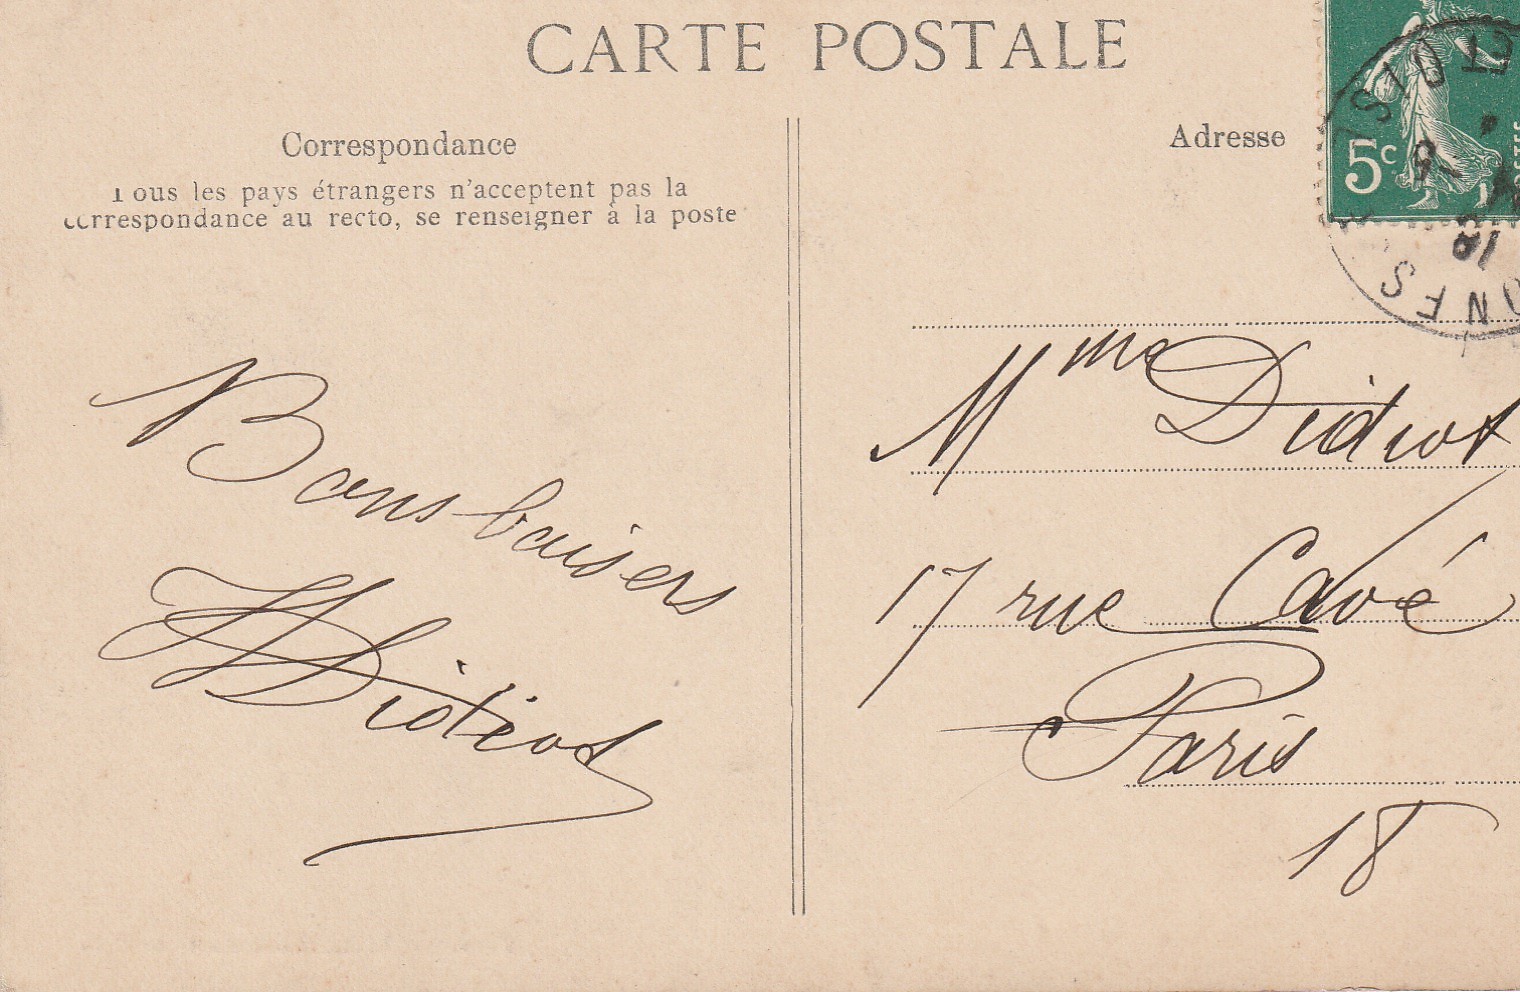 CARTE POSTALE
Correspondance
Tous les pays étrangers n'acceptent pas la
correspondance au recto, se renseigner à la poste
Bons baisers
Adresse
5c
Mme Didiot
17 rue Cavé
Paris
18